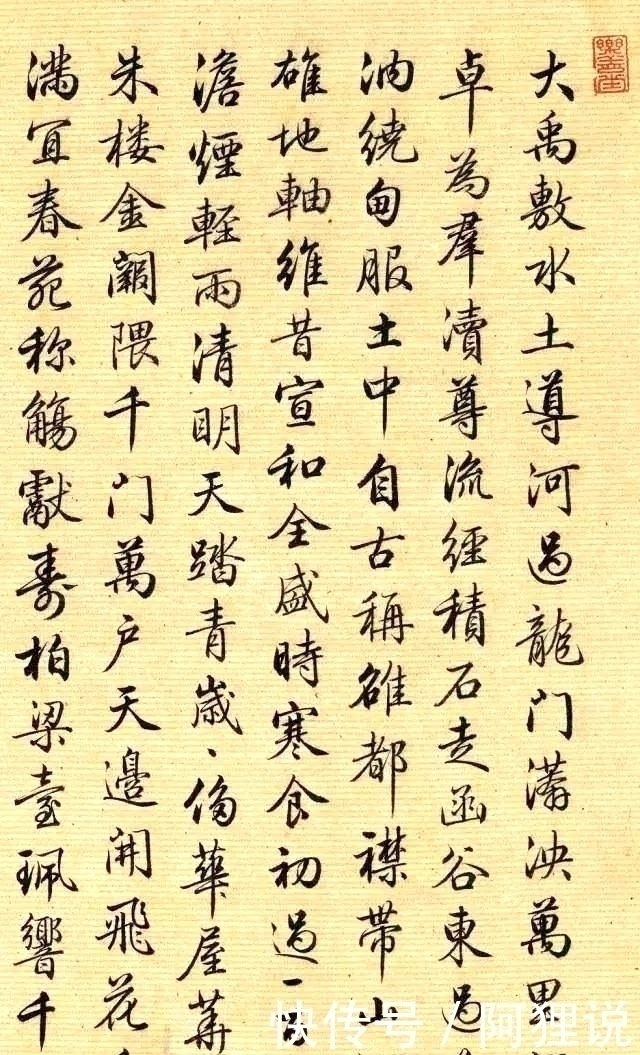 大禹敷水土導河過龍门漭泱萬里
卓為羣瀆尊流經積石走函谷東過
汭繞甸服土中自古稱雄都襟帶山
雄地軸維昔宣和全盛時寒食初過一
澹煙輕雨清明天踏青歲、侈華屋
朱楼金闕隈千门萬户天邊開飛花
满宜春苑称觴獻壽柏梁臺珮響千
快传号/阿狸说